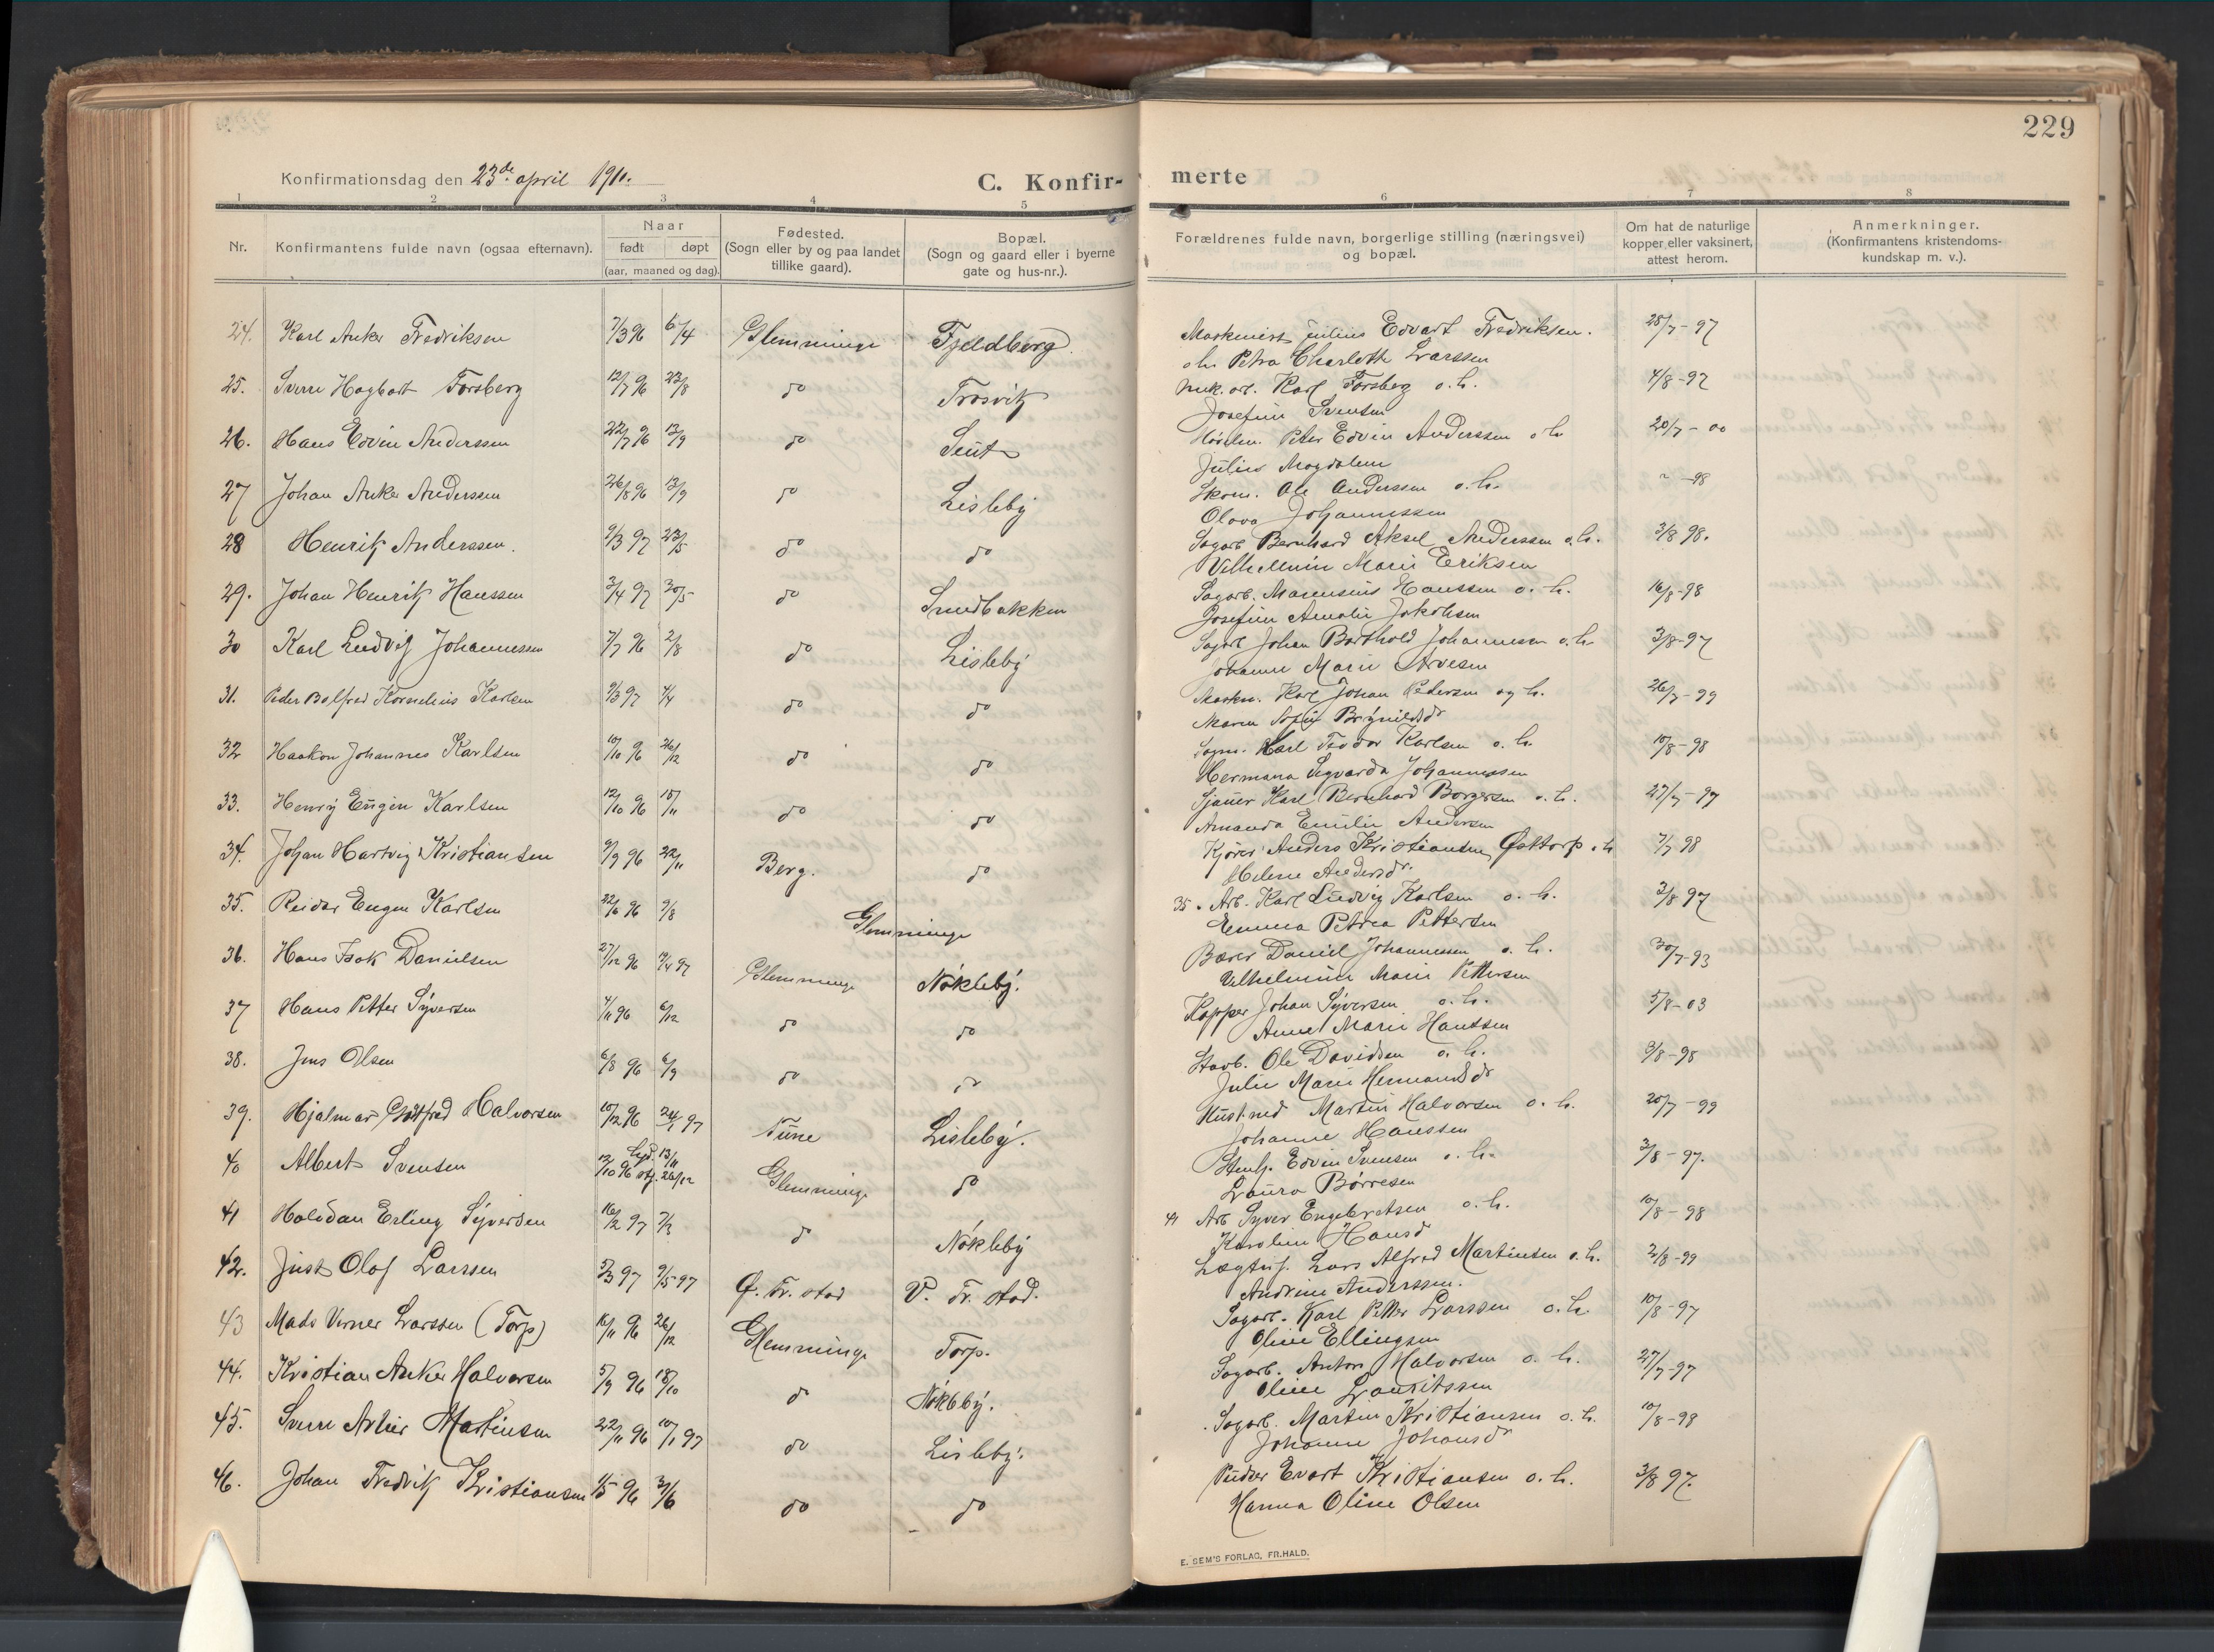 229
Konfirmationsdag den 23de april 1911.
C. Konfir-
merte
1 2 3 4 5 6 7 8
Nr.
Konfirmantens fulde navn (ogsaa efternavn).
Naar
født døpt
(aar, maaned og dag).
Fødested.
(Sogn eller by og paa landet
tillike gaard).
Bopæl.
(Sogn og gaard eller i byerne
gate og hus-nr.).
Forældrenes fulde navn, borgerlige stilling (næringsvei)
og bopæl.
Om hat de naturlige
kopper eller vaksinert,
attest herom.
Anmerkninger.
(Konfirmantens kristendoms-
kundskap m. v.).
24. Karl Anker Fredriksen 7/3 96 6/4 Glemminge Fjeldberg. Maskinist Julius Edvart Fredriksen. 28/7-97
o.h. Petra Charlotte Larssen
25. Sverre Hagbart Forsberg 12/7 96 23/8 do Trosvik Karl Forsberg o. h. 4/8-97
Josefine Svensen
26. Hans Edvin Anderssen 22/7 96 13/9 do Seut Peter Edvin Anderssen o h 20/7-00
Julie Magdalene
27 Johan Anker Anderssen 26/8 96 13/9 do Lisleby Skom. Ole Anderssen o. h. -98
Olava Johannessen
28 Henrik Anderssen. 9/3 97 23/5 do do Sagarb. Bernhard Aksel Anderssen o.h. 3/8 98.
Vilhelmine Marie Eriksen
29. Johan Henrik Hanssen 3/4 97 30/5 do Smedbakken Sagarb. Marensius Hanssen o. h. 16/8-98
Josefine Amalie Jakobsen
30 Karl Ludvig Johannessen 7/7 96 2/8 do Lisleby Sagarb. Johan Barthold Johannessen o.h. 3/8-97
Johanne Marie Arvesen
31. Peder Balfred Kornelius Karlsen 9/3 97 4/4 do do Maskn. Karl Johan Pedersen og h. 26/7-99
Maren Sofie Brynildsdr
32 Haakon Johannes Karlsen 10/10 96 26/12 do do Sagm. Karl Teodor Karlsen o. h. 10/8-98
Hermana Sigvarda Johannessen
33. Henry Eugen Karlsen 12/10 96 15/11 do do Sjauer Karl Bernhard Borgersen o. h. 27/7-97
Amanda Emilie Andersen
34. Johan Hartvig Kristiansen 9/9 96 22/11 Berg. do Kjører Anders Kristiansen, Østtorp o h 7/7 98
Helene Andersdr.
35. Reidar Eugen Karlsen 22/6 96 9/8 Glemminge 35. Arb. Karl Ludvig Karlsen o. h. 3/8 97
Emma Petrea Pettersen
36. Hans Isak Danielsen 27/12 96 19/4 97 Glemminge Nøkleby. Bærer Daniel Johannessen o. h. 30/7-93
Vilhelmine Marie Pettersen
37 Hans Petter Syversen 4/11 96 6/12 do do Kopper Johan Syversen o. h. 5/8-03
Anne Marie Hanssen
38. Jens Olsen 6/8 96 6/9 do do Stavb. Ole Davidsen o. h. 9/8-98
Julie Marie Hermansdr
39. Hjalmar Gotfred Halvorsen 10/12 96 24/1 97 Tune Lisleby. Hustmd Martin Halvorsen o. h. 20/7-99
Johanne Hanssen
40 Albert Svensen 12/10 96 13/11 stf. 26/12 Glemminge do Stenh. Edvin Svensen o. h. 3/8-97.
Laura Børresen
41 Halvdan Erling Syversen 16/2 97 7/3 do Nøkleby 41 Arb Syver Engebretsen o. h. 10/8-98
Karoline Hansd
42. Just Olaf Larssen 3/3 97 9/5 97 Ø. Fr. stad V. Fr. stad. Lars Alfred Martinsen o. h. 2/8-99
Andrine Anderssen.
43 Mads Verner Larssen (Torp) 16/11 96 26/12 Glemminge Torp. Sagarb. Karl Petter Larssen o. h. 10/8-97
Oline Ellingsen
44. Kristian Anker Halvorsen 5/9 96 18/10 do Nøkleby. Sagarb. Anton Halvorsen o. h. 27/7-97
Oline Lauritssen
45. Sverre Artur Martinsen 22/11 96 10/1 97 do Lisleby. Sagarb. Martin Kristiansen o. h. 10/8-98
Johanne Johansdr
46. Johan Fredrik Kristiansen 1/5 96 3/6 do do Pudser Evart Kristiansen o. h. 3/8 97.
Hanna Oline Olsen
E. SEM'S FORLAG, FR.HALD.